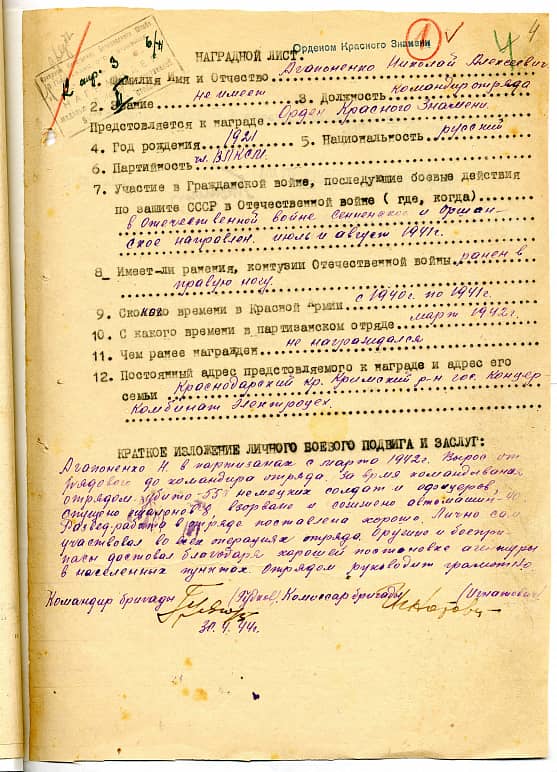 4
1
Орденом Красного Знамени
4
6/4
2 апр. 3
НАГРАДНОЙ ЛИСТ.
1. Фамилия Имя и Отчество Агапоненко Николай Алексеевич
2. Звание не имеет 3. Должность командир отряда
Представляется к награде Орден Красного Знамени
4. Год рождения 1921 5. Национальность русский
6. Партийность чл. ВЛКСМ
7. Участие в Гражданской войне, последующие боевые действия
по защите СССР в Отечественной войне ( где, когда)
в Отечественной войне Сенненское и Оршан-
ское направлен. июль и август 1941г.
8_ Имеет-ли ранения, контузии Отечественной войны ранен в
правую ногу
9. Сколько времени в Красной Армии с 1940г. по 1941г.
10. С какого времени в партизанском отряде март 1942г.
11. Чем ранее награжден не награждался
12. Постоянный адрес представляемого к награде и адрес его
семьи Краснодарский кр. Кримский р-н гос. Консер-
Комбинат Электроцех.
КРАТКОЕ ИЗЛОЖЕНИЕ ЛИЧНОГО БОЕВОГО ПОДВИГА И ЗАСЛУГ:
Агапоненко Н. в партизанах с марта 1942г. Вырос от
рядового до командира отряда. За время командования
отрядом убито-551 немецких солдат и офицеров,
спущено эшелонов взорвано и сожжено автомашин-40
Развед.работа в отряде поставлена хорошо. Лично сам
участвовал во всех операциях отряда. Оружие и боепри-
пасы доставал благодаря хорошей постановке агентуры
в населенных пунктах. отрядом руководит грамотно.
Командир бригады (Гудков) Комиссар бригады (Игнатович)
44г.